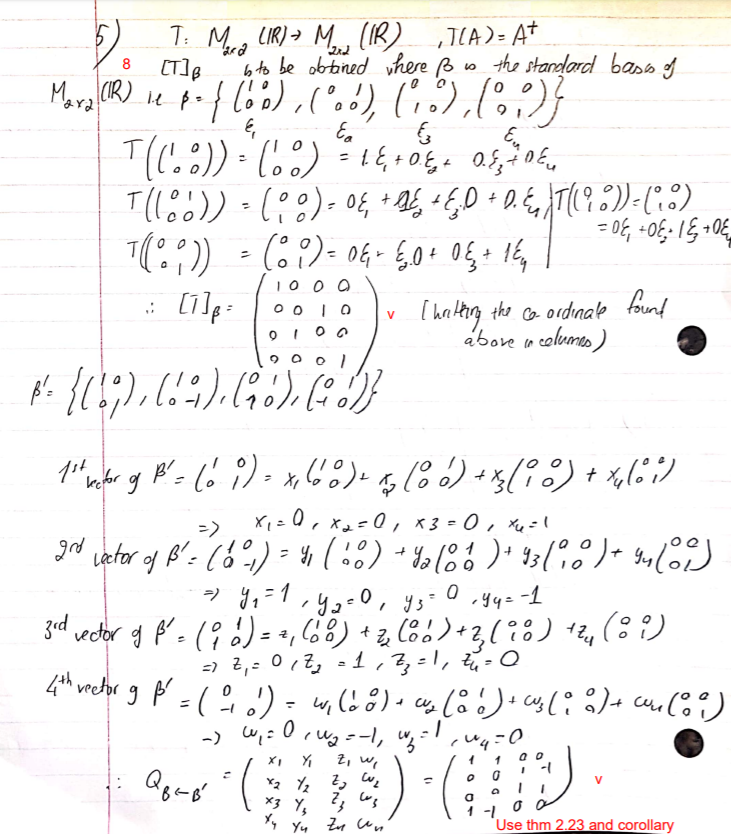 5) T: M₂ₓ₂ (IR) → M₂ₓ₂ (IR) , T(A) = Aᵗ
8 [T]β is to be obtained where β is the standard basis of
M₂ₓ₂ (IR) i.e β = { (1 0 / 0 0), (0 1 / 0 0), (0 0 / 1 0), (0 0 / 0 1) }
ε₁ ε₂ ε₃ ε₄
T((1 0 / 0 0)) = (1 0 / 0 0) = 1.ε₁ + 0.ε₂ + 0.ε₃ + 0ε₄
T((0 1 / 0 0)) = (0 0 / 1 0) = 0ε₁ + ε₂ + ε₃.0 + 0.ε₄ | T((0 0 / 1 0)) = (0 0 / 1 0)
= 0ε₁ + 0ε₂ + 1ε₃ + 0ε₄
T((0 0 / 0 1)) = (0 0 / 0 1) = 0ε₁ + ε₂.0 + 0ε₃ + 1ε₄
∴ [T]β = (1 0 0 0 / 0 0 1 0 / 0 1 0 0 / 0 0 0 1) v (Writing the co-ordinate found
above in columns)
β' = { (1 0 / 0 1), (1 0 / 0 -1), (0 1 / 1 0), (0 1 / -1 0) }
1st vector of β' = (1 0 / 0 1) = x₁ (1 0 / 0 0) + x₂ (0 1 / 0 0) + x₃ (0 0 / 1 0) + x₄ (0 0 / 0 1)
=> x₁ = 0, x₂ = 0, x3 = 0, x₄ = 1
2nd vector of β' = (1 0 / 0 -1) = y₁ (1 0 / 0 0) + y₂ (0 1 / 0 0) + y₃ (0 0 / 1 0) + y₄ (0 0 / 0 1)
=> y₁ = 1, y₂ = 0, y₃ = 0, y₄ = -1
3rd vector of β' = (0 1 / 1 0) = z₁ (1 0 / 0 0) + z₂ (0 1 / 0 0) + z₃ (0 0 / 1 0) + z₄ (0 0 / 0 1)
=> z₁ = 0, z₂ = 1, z₃ = 1, z₄ = 0
4th vector of β' = (0 1 / -1 0) = w₁ (1 0 / 0 0) + w₂ (0 1 / 0 0) + w₃ (0 0 / 1 0) + w₄ (0 0 / 0 1)
-> w₁ = 0, w₂ = -1, w₃ = 1, w₄ = 0
∴ Q B←B' = (x₁ y₁ z₁ w₁ / x₂ y₂ z₂ w₂ / x₃ y₃ z₃ w₃ / x₄ y₄ z₄ w₄) = (1 1 0 0 / 0 0 1 -1 / 0 0 1 1 / 1 -1 0 0) v
Use thm 2.23 and corollary